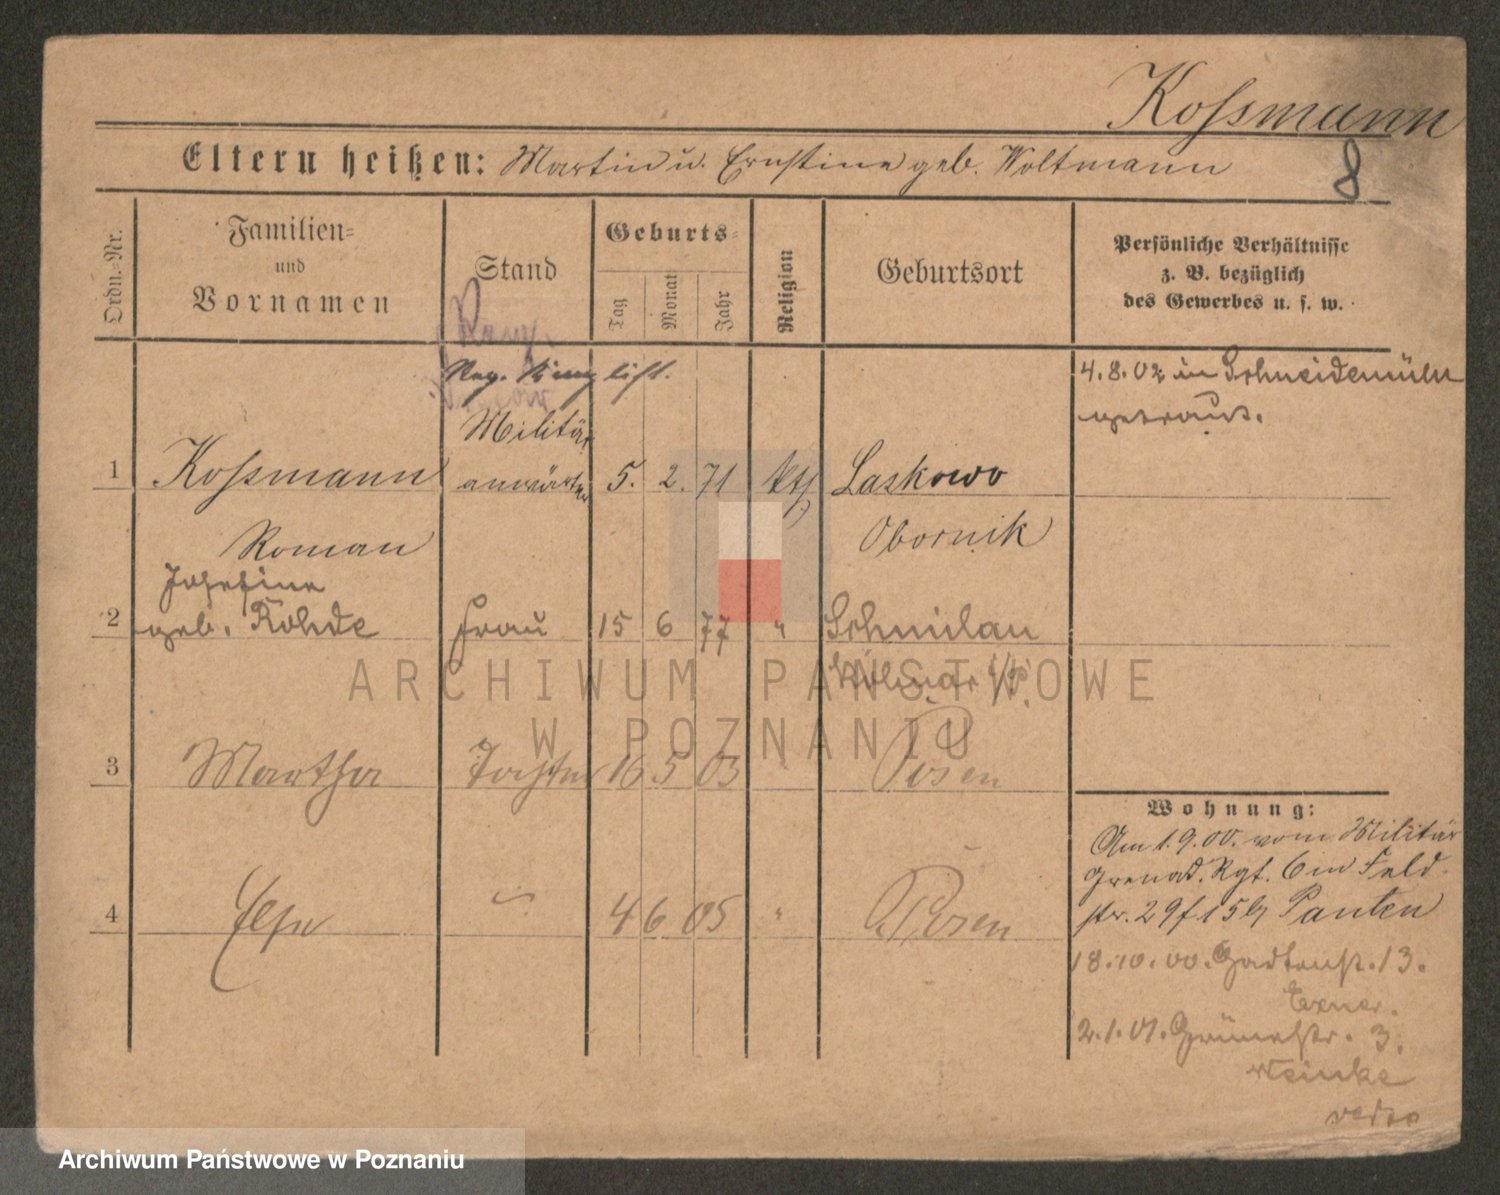 Kossmann
Eltern heißen: Martin u. Ernstine geb. Woltmann
8
Ordn.-Nr.
Familien-
und
Vornamen
Stand
Geburts-
Tag
Monat
Jahr
Religion
Geburtsort
Persönliche Verhältnisse
z. B. bezüglich
des Gewerbes u. s. w.
Reg. Kanzlist.
4.8.02 in Schneidemühl
getraut.
Militär
1 Kossmann anwärter 5. 2. 71 kth Laskowo
Roman Obornik
Josefine
2 geb. Rohde Frau 15 6 77 " Schmilau
Kolmar i/P.
3 Martha Tochter 16 5 03 " Posen
Wohnung:
Am 1.9.00. vom Militär
Grenad. Rgt. 6 in Feld-
str. 29 b/ Panten
4 Else 4 6 05 " Posen
18.10.00. 13.
Exner.
2.1.01. Grünestr. 3.
Reinke
ARCHIWUM PAŃSTWOWE
W POZNANIU
Archiwum Państwowe w Poznaniu